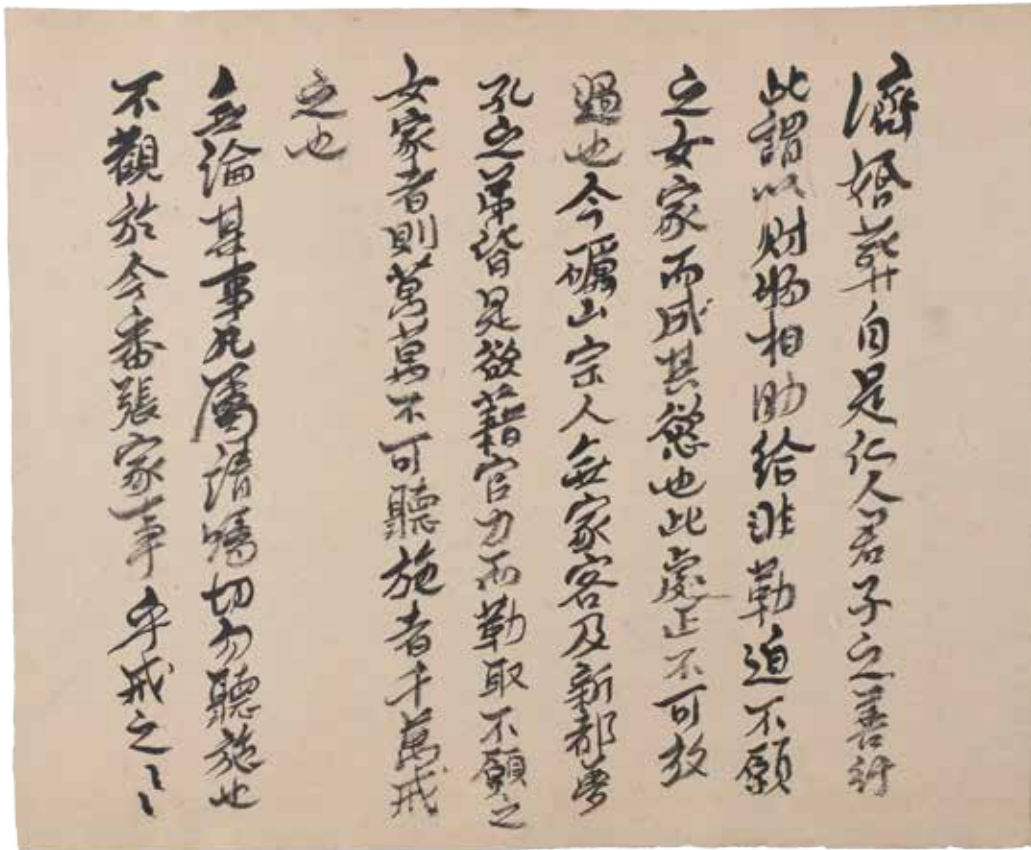 濟婚葬自是仁人君子之善行
此謂以財物相助給非勒迫不願
之女家而成其慾也此處正不可放
過也今礪山宗人無家客及新都
孔之弟皆是欲藉官力而勒取不願之
女家者則萬萬不可聽施者千萬戒
之也
無論某事凡屬請囑切勿聽施也
不觀於今番張家事乎戒之〻